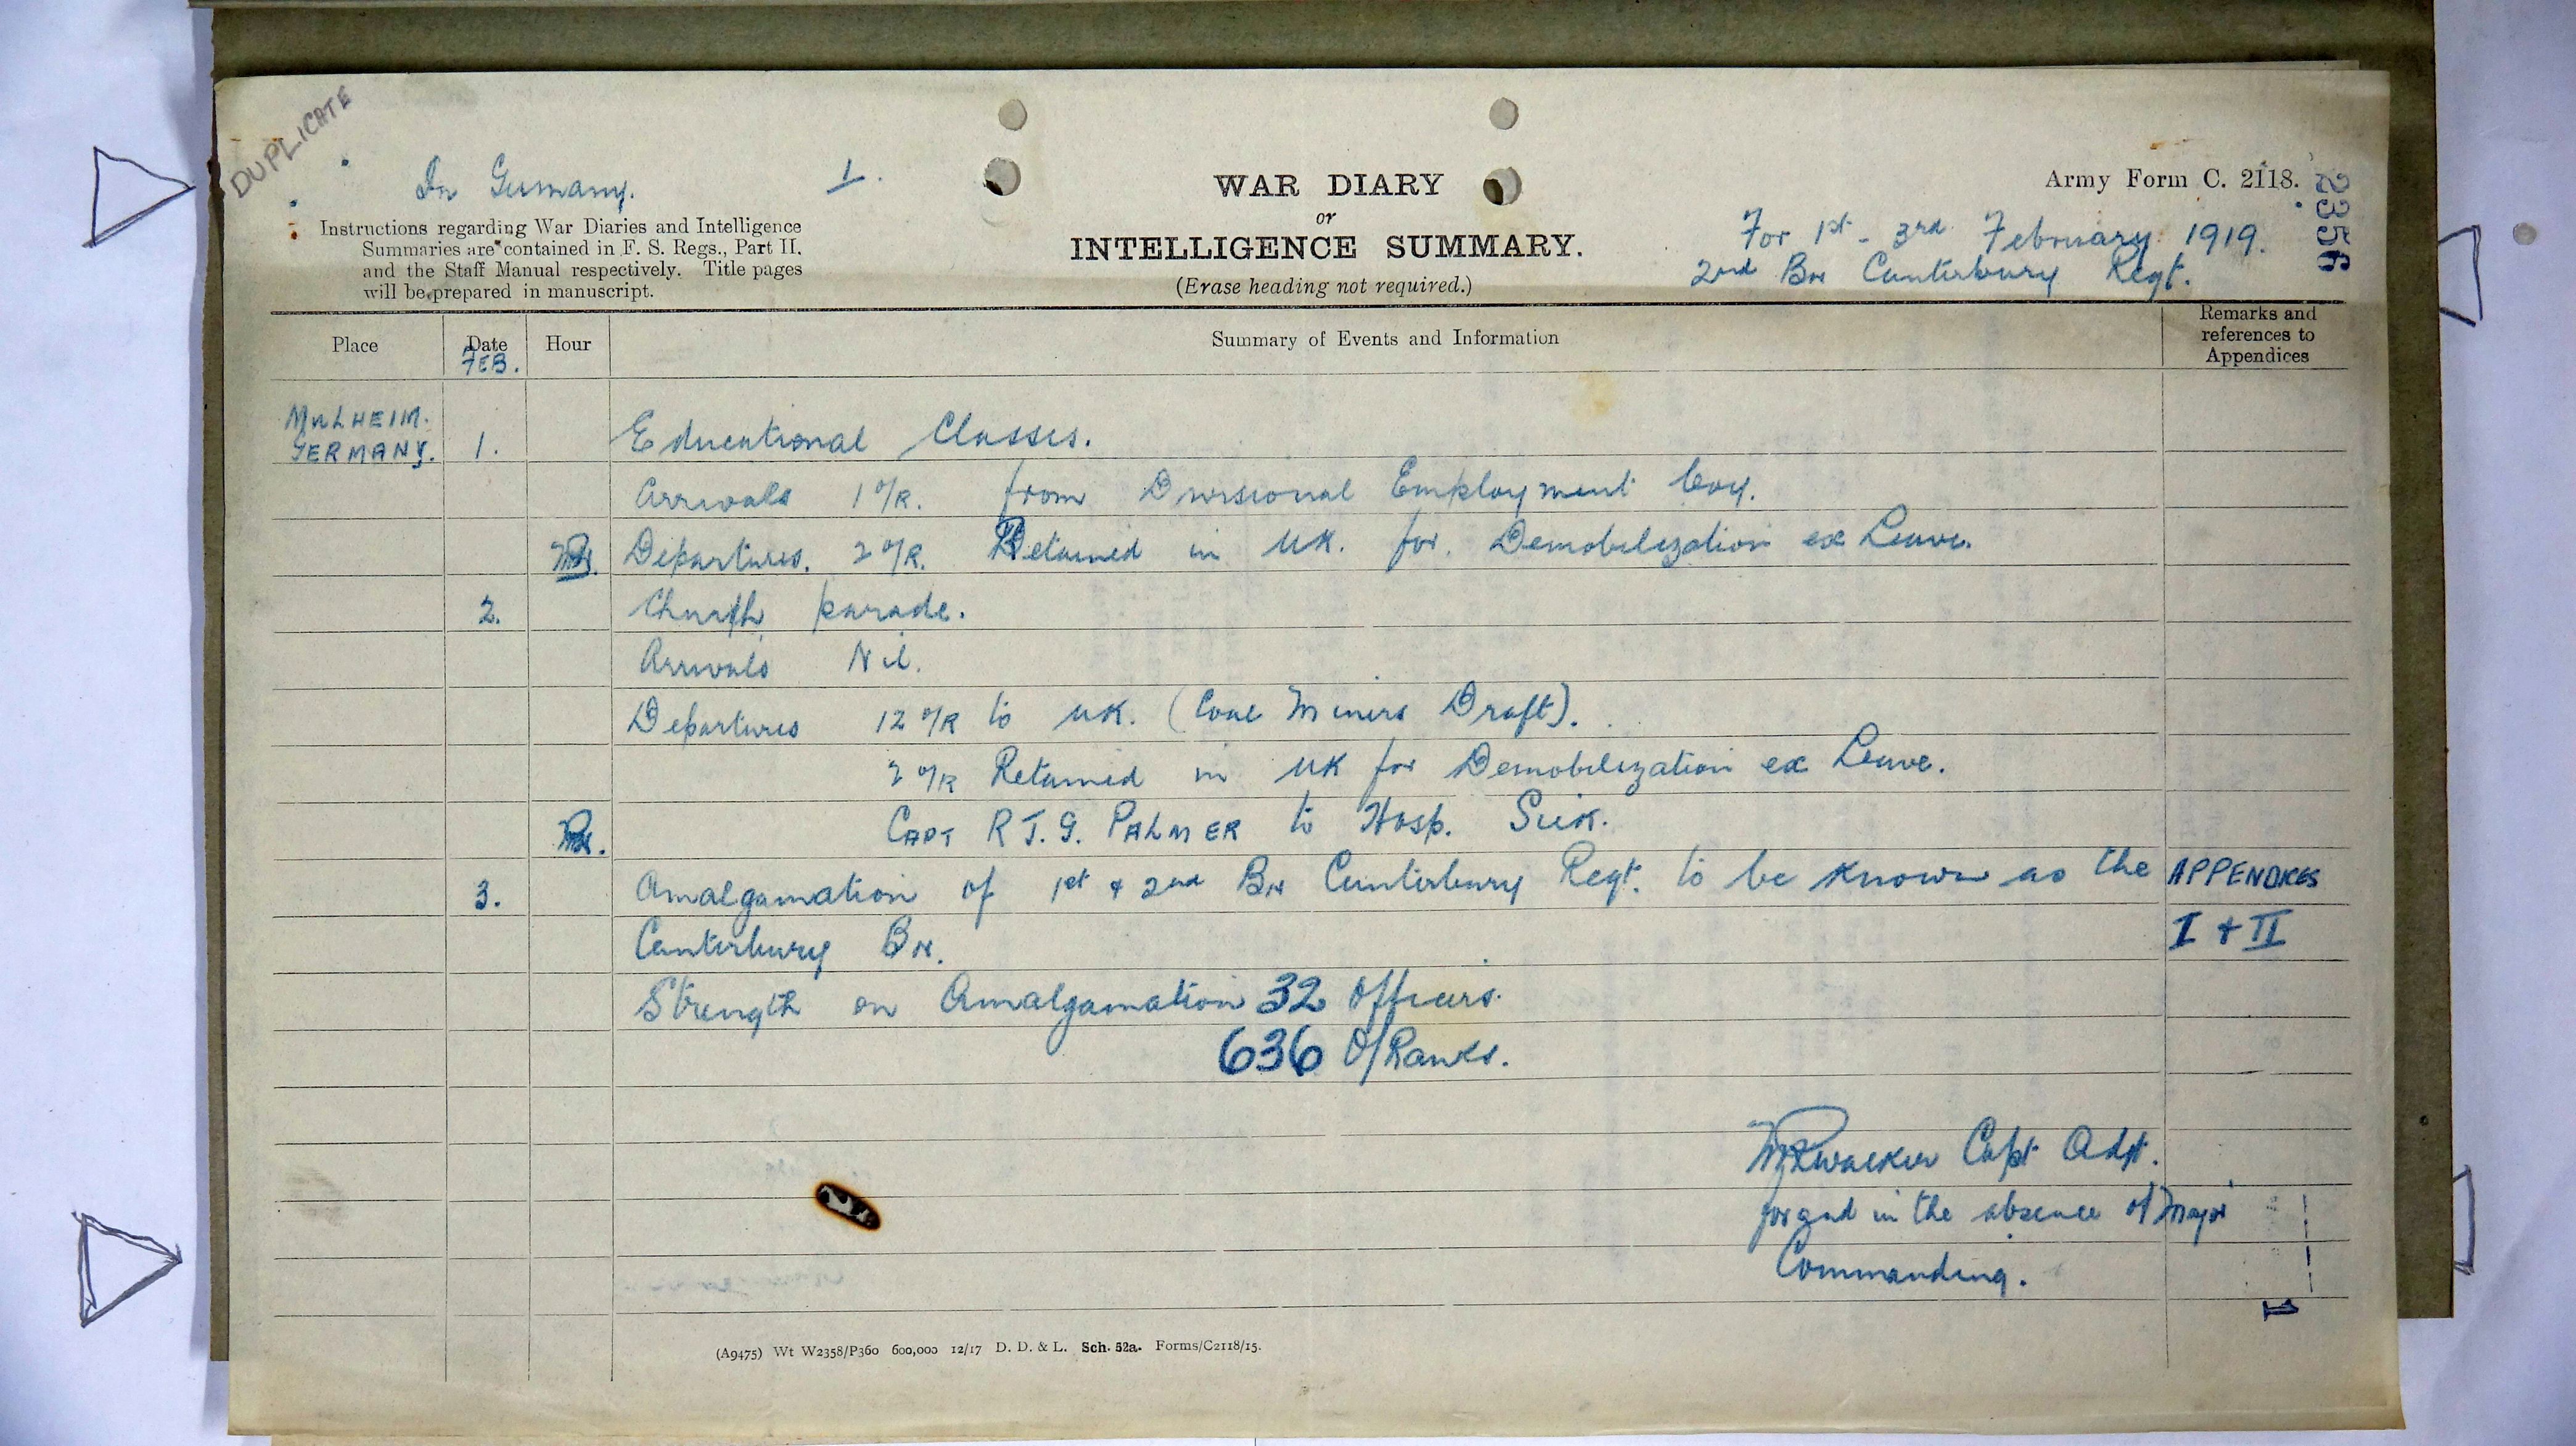 DUPLICATE
In Germany.
1.
WAR DIARY
or
INTELLIGENCE SUMMARY.
(Erase heading not required.)
Army Form C. 2118.
2356
Instructions regarding War Diaries and Intelligence
Summaries are contained in F. S. Regs., Part II.
and the Staff Manual respectively. Title pages
will be prepared in manuscript.
For 1st - 3rd February 1919.
2nd Bn Canterbury Regt.
Place Date Hour Summary of Events and Information Remarks and references to Appendices
FEB.
MULHEIM.
GERMANY. 1. Educational Classes.
Arrivals 1 O/R. from Divisional Employment Coy.
Departures. 2 O/R. Retained in UK. for. Demobilization ex Leave.
2. Church parade.
Arrivals Nil.
Departures 12 O/R to UK. (Coal Miners Draft).
2 O/R Retained in UK for Demobilization ex Leave.
CAPT R J. G. PALMER to Hosp. Sick.
3. Amalgamation of 1st & 2nd Bn Canterbury Regt. to be known as the APPENDICES
Canterbury Bn. I + II
Strength on Amalgamation 32 Officers.
636 O/Ranks.
Capt Adjt.
for and in the absence of Major
Commanding.
1
(A9475) Wt W2358/P360 600,000 12/17 D. D. & L. Sch. 52a. Forms/C2118/15.